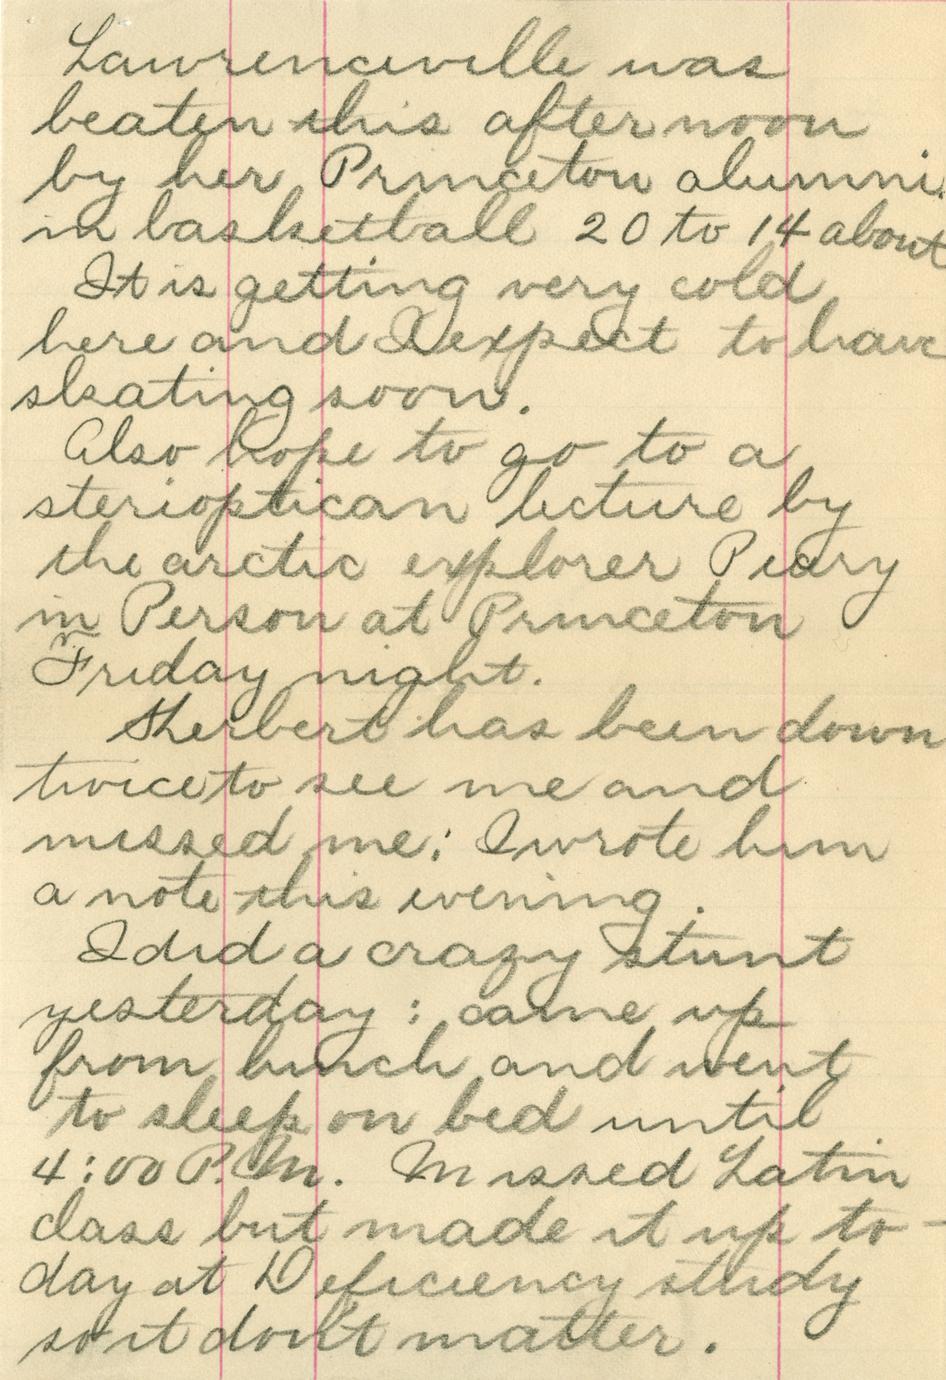 Lawrenceville was
beaten this afternoon
by her Princeton alumni.
in basketball 20 to 14 about
It is getting very cold
here and I expect to have
skating soon.
Also hope to go to a
sterioptican lecture by
the arctic explorer Peary
in Person at Princeton
Friday night.
Herbert has been down
twice to see me and
missed me; I wrote him
a note this evening.
I did a crazy stunt
yesterday: came up
from lunch and went
to sleep on bed until
4:00 P.M. Missed Latin
class but made it up to-
day at Deficiency study
so it don't matter.